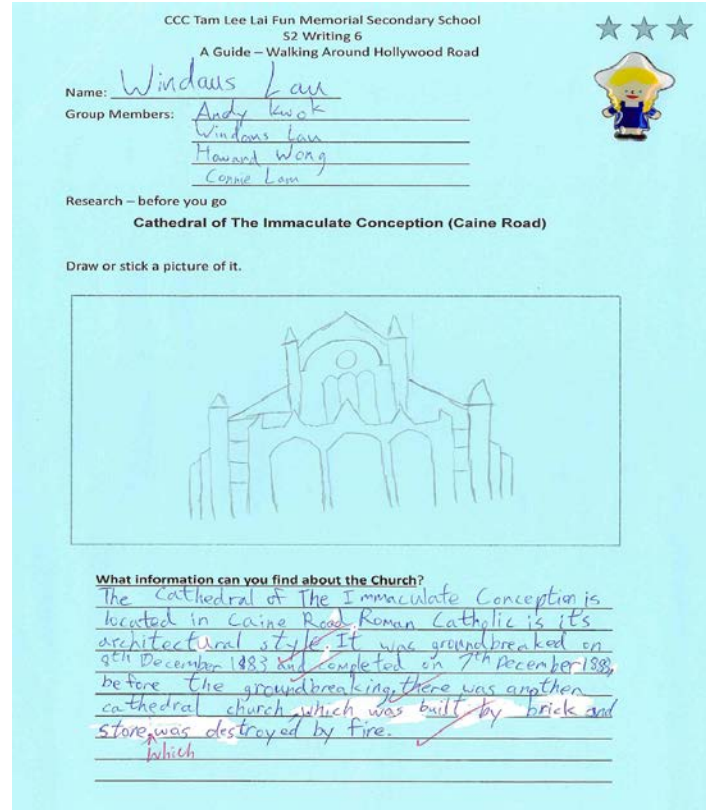 CCC Tam Lee Lai Fun Memorial Secondary School
S2 Writing 6
A Guide – Walking Around Hollywood Road
Name: Windaus Lau
Group Members: Andy Kwok
Windaus Lau
Howard Wong
Connie Lam
Research – before you go
Cathedral of The Immaculate Conception (Caine Road)
Draw or stick a picture of it.
What information can you find about the Church?
The Cathedral of The Immaculate Conception is
located in Caine Road. Roman Catholic is it's
architectural style. It was groundbreaked on
8th December 1883 and completed on 7th December 1888,
before the groundbreaking, there was another
cathedral church, which was built by brick and
stone, was destroyed by fire.
which